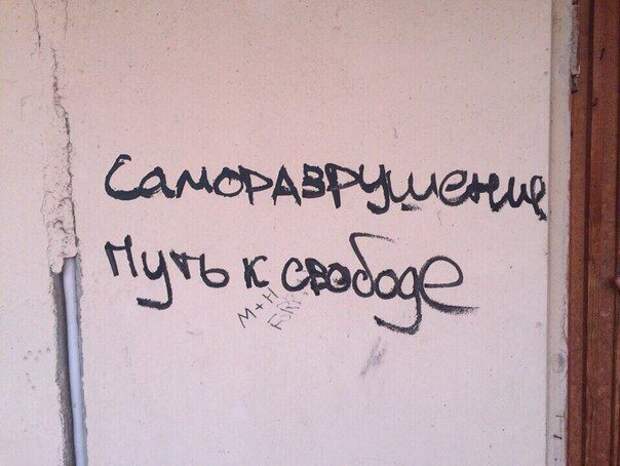 Саморазрушение
Путь к свободе
М+Н